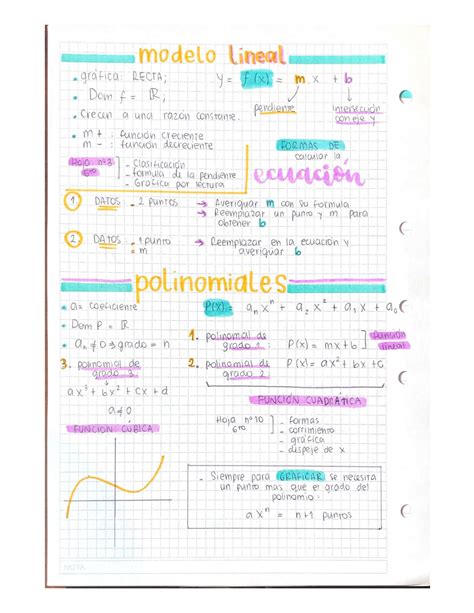 modelo lineal
• gráfica: RECTA;
y = f(x) = m x + b
• Dom f = ℝ;
pendiente
intersección con eje y
• Crecen a una razón constante.
• m + : función creciente
m - : función decreciente
FORMAS DE calcular la
ecuación
Hoja nº3 6to
- Clasificación
- fórmula de la pendiente
- Gráfica por lectura
1 DATOS: - 2 puntos → Averiguar m con su fórmula
→ Reemplazar un punto y m para
obtener b
2 DATOS: - 1 punto → Reemplazar en la ecuación y
- m averiguar b
polinomiales
• a = coeficiente
P(x) = aₙxⁿ + a₂x² + a₁x + a₀
• Dom P = ℝ
• aₙ ≠ 0 → grado = n
1. polinomial de grado 1 : P(x) = mx + b
función lineal
2. polinomial de grado 2 P(x) = ax² + bx + c
3. polinomial de grado 3:
ax³ + bx² + cx + d
a≠0
FUNCIÓN CUADRÁTICA
FUNCIÓN CÚBICA
Hoja nº10 6to
- formas
- corrimiento
- gráfica
- despeje de x
- Siempre para GRAFICAR se necesita
un punto más que el grado del
polinomio:
a xⁿ = n+1 puntos
NOTA